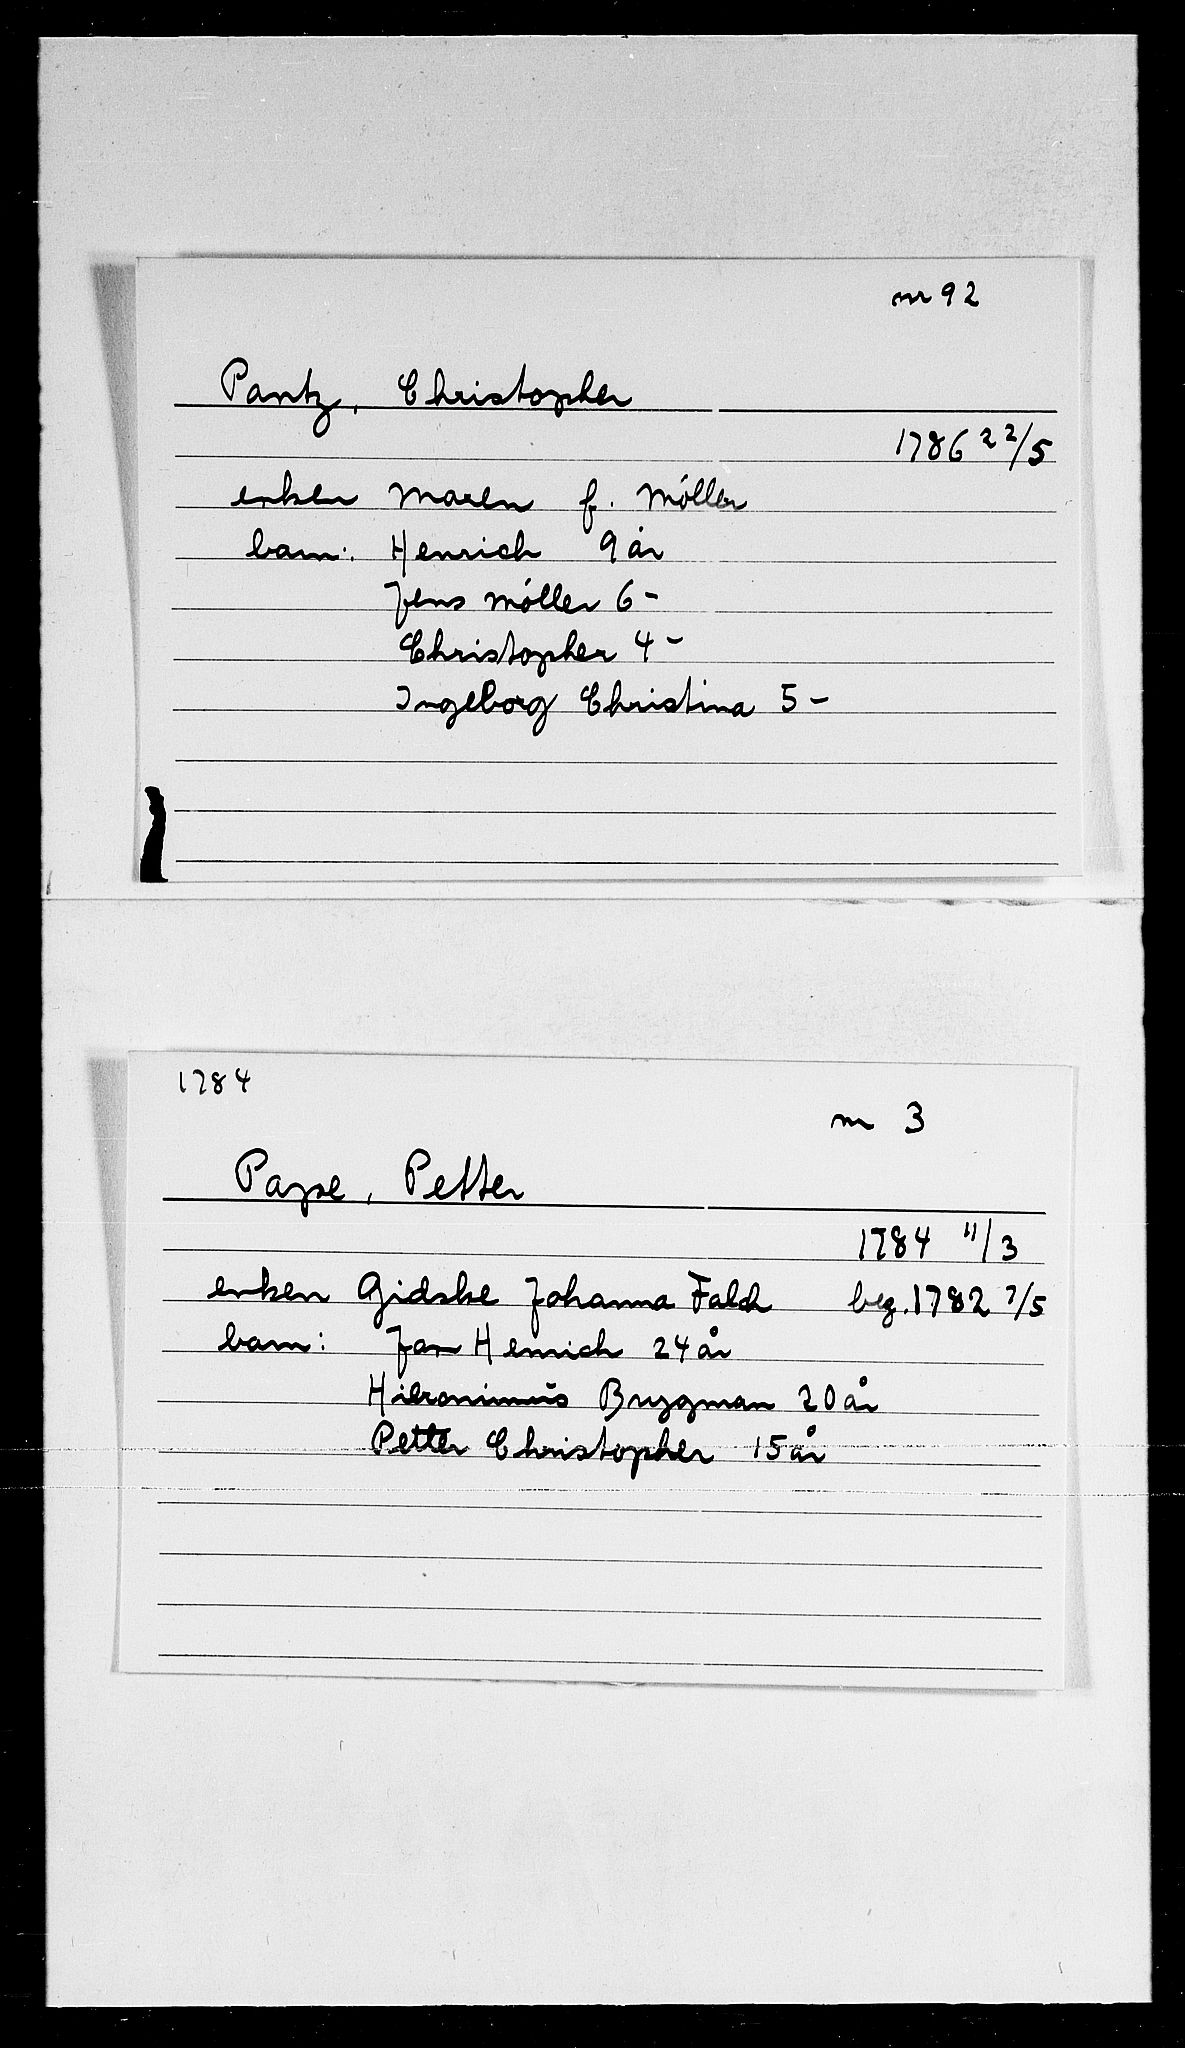 nr 92
Pantz, Christopher
1786 22/5
enken Maren f. Møller
barn: Henrich 9 år
Jens Møller 6 -
Christopher 4 -
Ingeborg Christina 5 -
1784
nr 3
Pape, Petter
1784 11/3
enken Gidske Johanna Falch beg. 1782 7/5
barn: Jan Henrich 24 år
Hieronimus Brygman 20 år
Petter Christopher 15 år